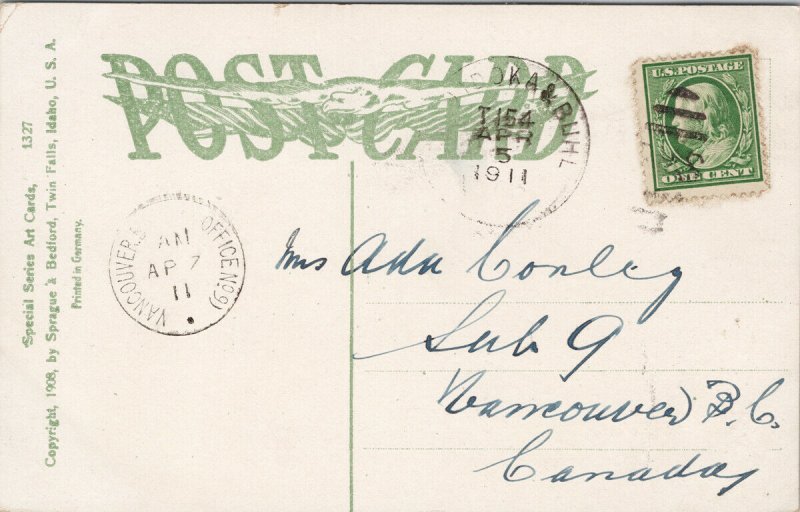 POST CARD
OKA & BUHL
T 154
APR
5
1911
U.S. POSTAGE
ONE CENT
VANCOUVER
OFFICE No 9)
AM
AP 7
11
Special Series Art Cards, 1327
Copyright, 1908, by Sprague & Bedford, Twin Falls, Idaho, U. S. A.
Printed in Germany.
Mrs Ada Conley
Sub 9
Vancouver B.C.
Canada